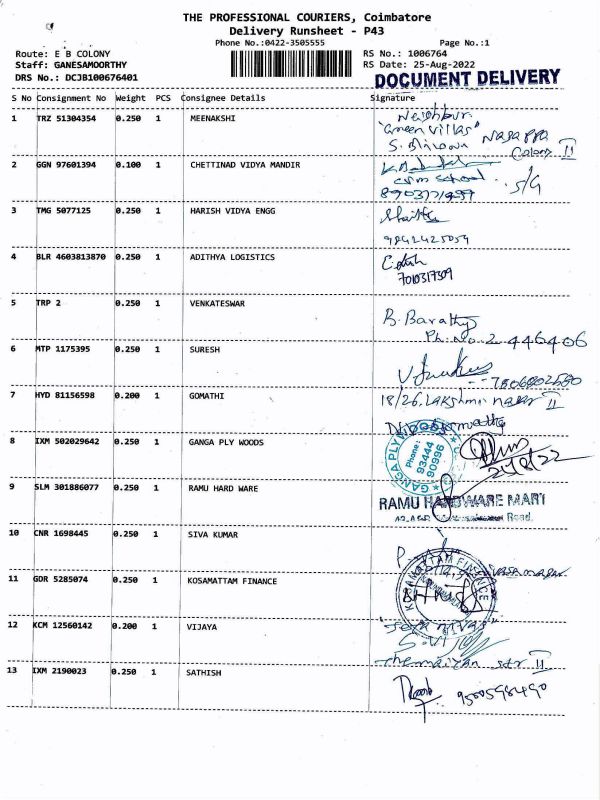 THE PROFESSIONAL COURIERS, Coimbatore
Delivery Runsheet - P43
Phone No.:0422-3505555
Page No.:1
Route: E B COLONY
RS No.: 1006764
Staff: GANESAMOORTHY
RS Date: 25-Aug-2022
DRS No.: DCJB100676401
DOCUMENT DELIVERY
S No Consignment No Weight PCS Consignee Details Signature
1 TRZ 51304354 0.250 1 MEENAKSHI
Neighbur
"Green Villas" Nagappa
Colony II
2 GGN 97601394 0.100 1 CHETTINAD VIDYA MANDIR
S/G
3 TMG 5077125 0.250 1 HARISH VIDYA ENGG
9842425059
4 BLR 4603813870 0.250 1 ADITHYA LOGISTICS
7010317309
5 TRP 2 0.250 1 VENKATESWAR
B. Barathy
Ph: No: 2446406
6 MTP 1175395 0.250 1 SURESH
7806802580
7 HYD 81156598 0.200 1 GOMATHI
18/26. Lakshmi nagar II
8 IXM 502029642 0.250 1 GANGA PLY WOODS
GANGA PLY
Phone:
93444
90996
9 SLM 301886077 0.250 1 RAMU HARD WARE
RAMU HARDWARE MART
Road.
10 CNR 1698445 0.250 1 SIVA KUMAR
11 GDR 5285074 0.250 1 KOSAMATTAM FINANCE
KOSAMATTAM FINANCE
12 KCM 12560142 0.200 1 VIJAYA
13 IXM 2190023 0.250 1 SATHISH
9500598490